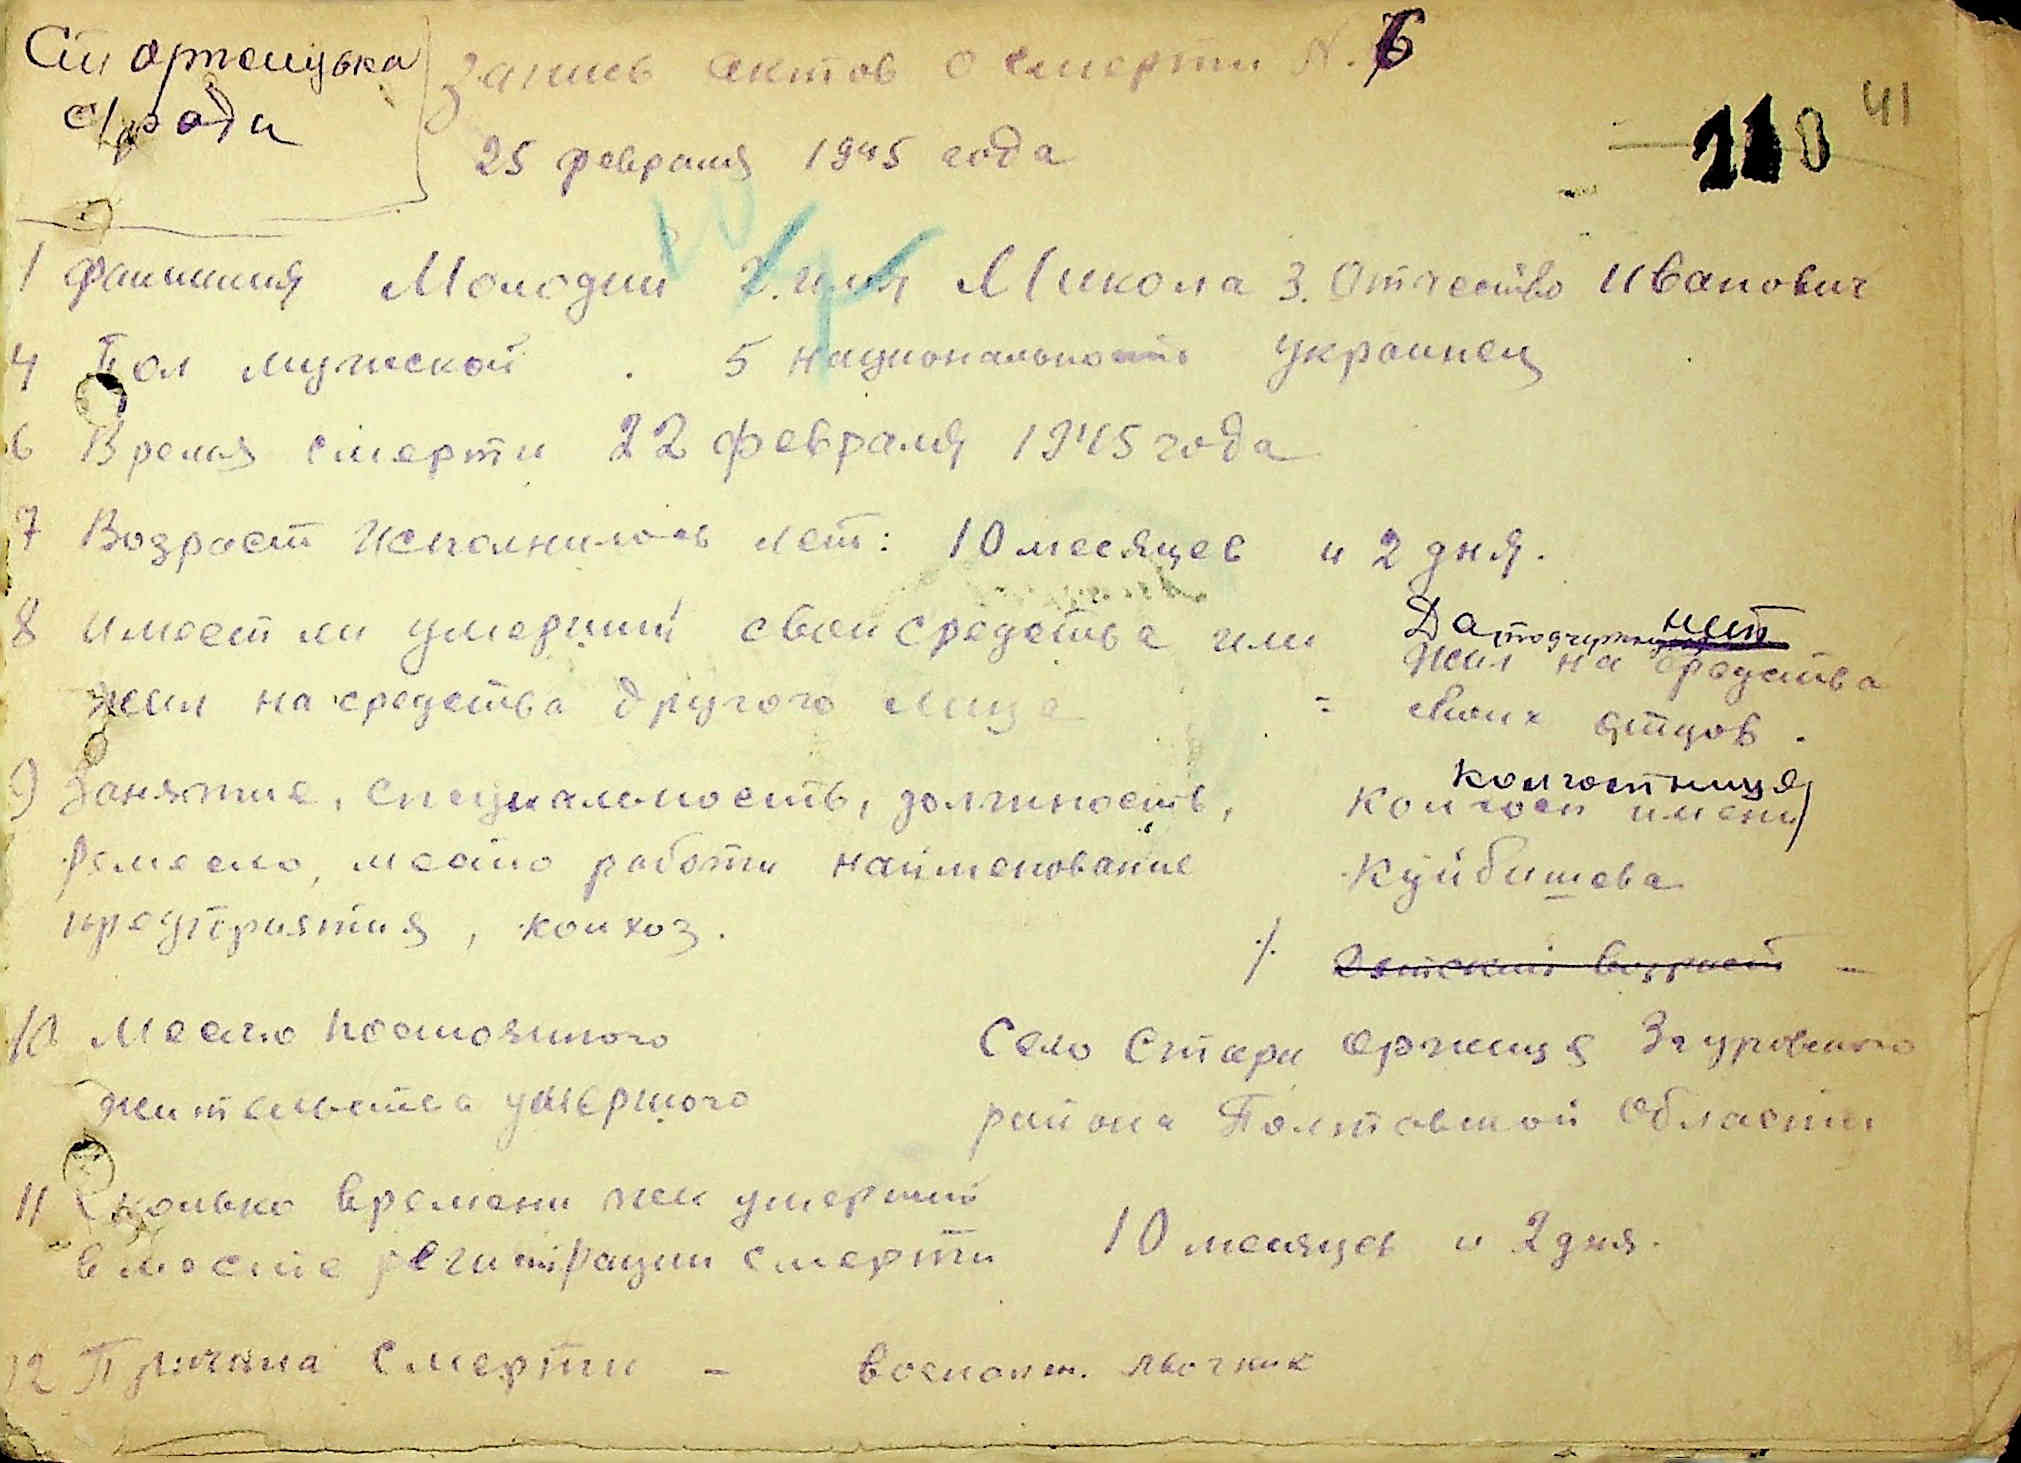 Ст Оржицька
с/рада
Запись актов о смерти N. 6
25 февраля 1945 года
110 41
1 Фамилия Молодии 2. имя Микола 3. Отчество Иванович
4 Пол мужеской . 5 национальность украинец
6 Время смерти 22 февраля 1945 года
7 Возраст Исполнилось лет: 10 месяцев и 2 дня.
8 имеет ли умерший свои средства или
жил на средства другого лица
Да, подчеркн нет
жил на средства
= своих отцов.
9 Занятие, специальность, должность,
ремесло, место работи наименование
предприятия, колхоз.
колгостница
Колгосп имени
Куйбишева
/. Детский возраст -
10 Место постоянного
жительства умершого
Село Стари Оржица Згуровского
района Полтавской Области
11 Сколько времени жил умерший
в месте регистрации смерти
10 месяцев и 2 дня.
12 Причина смерти -